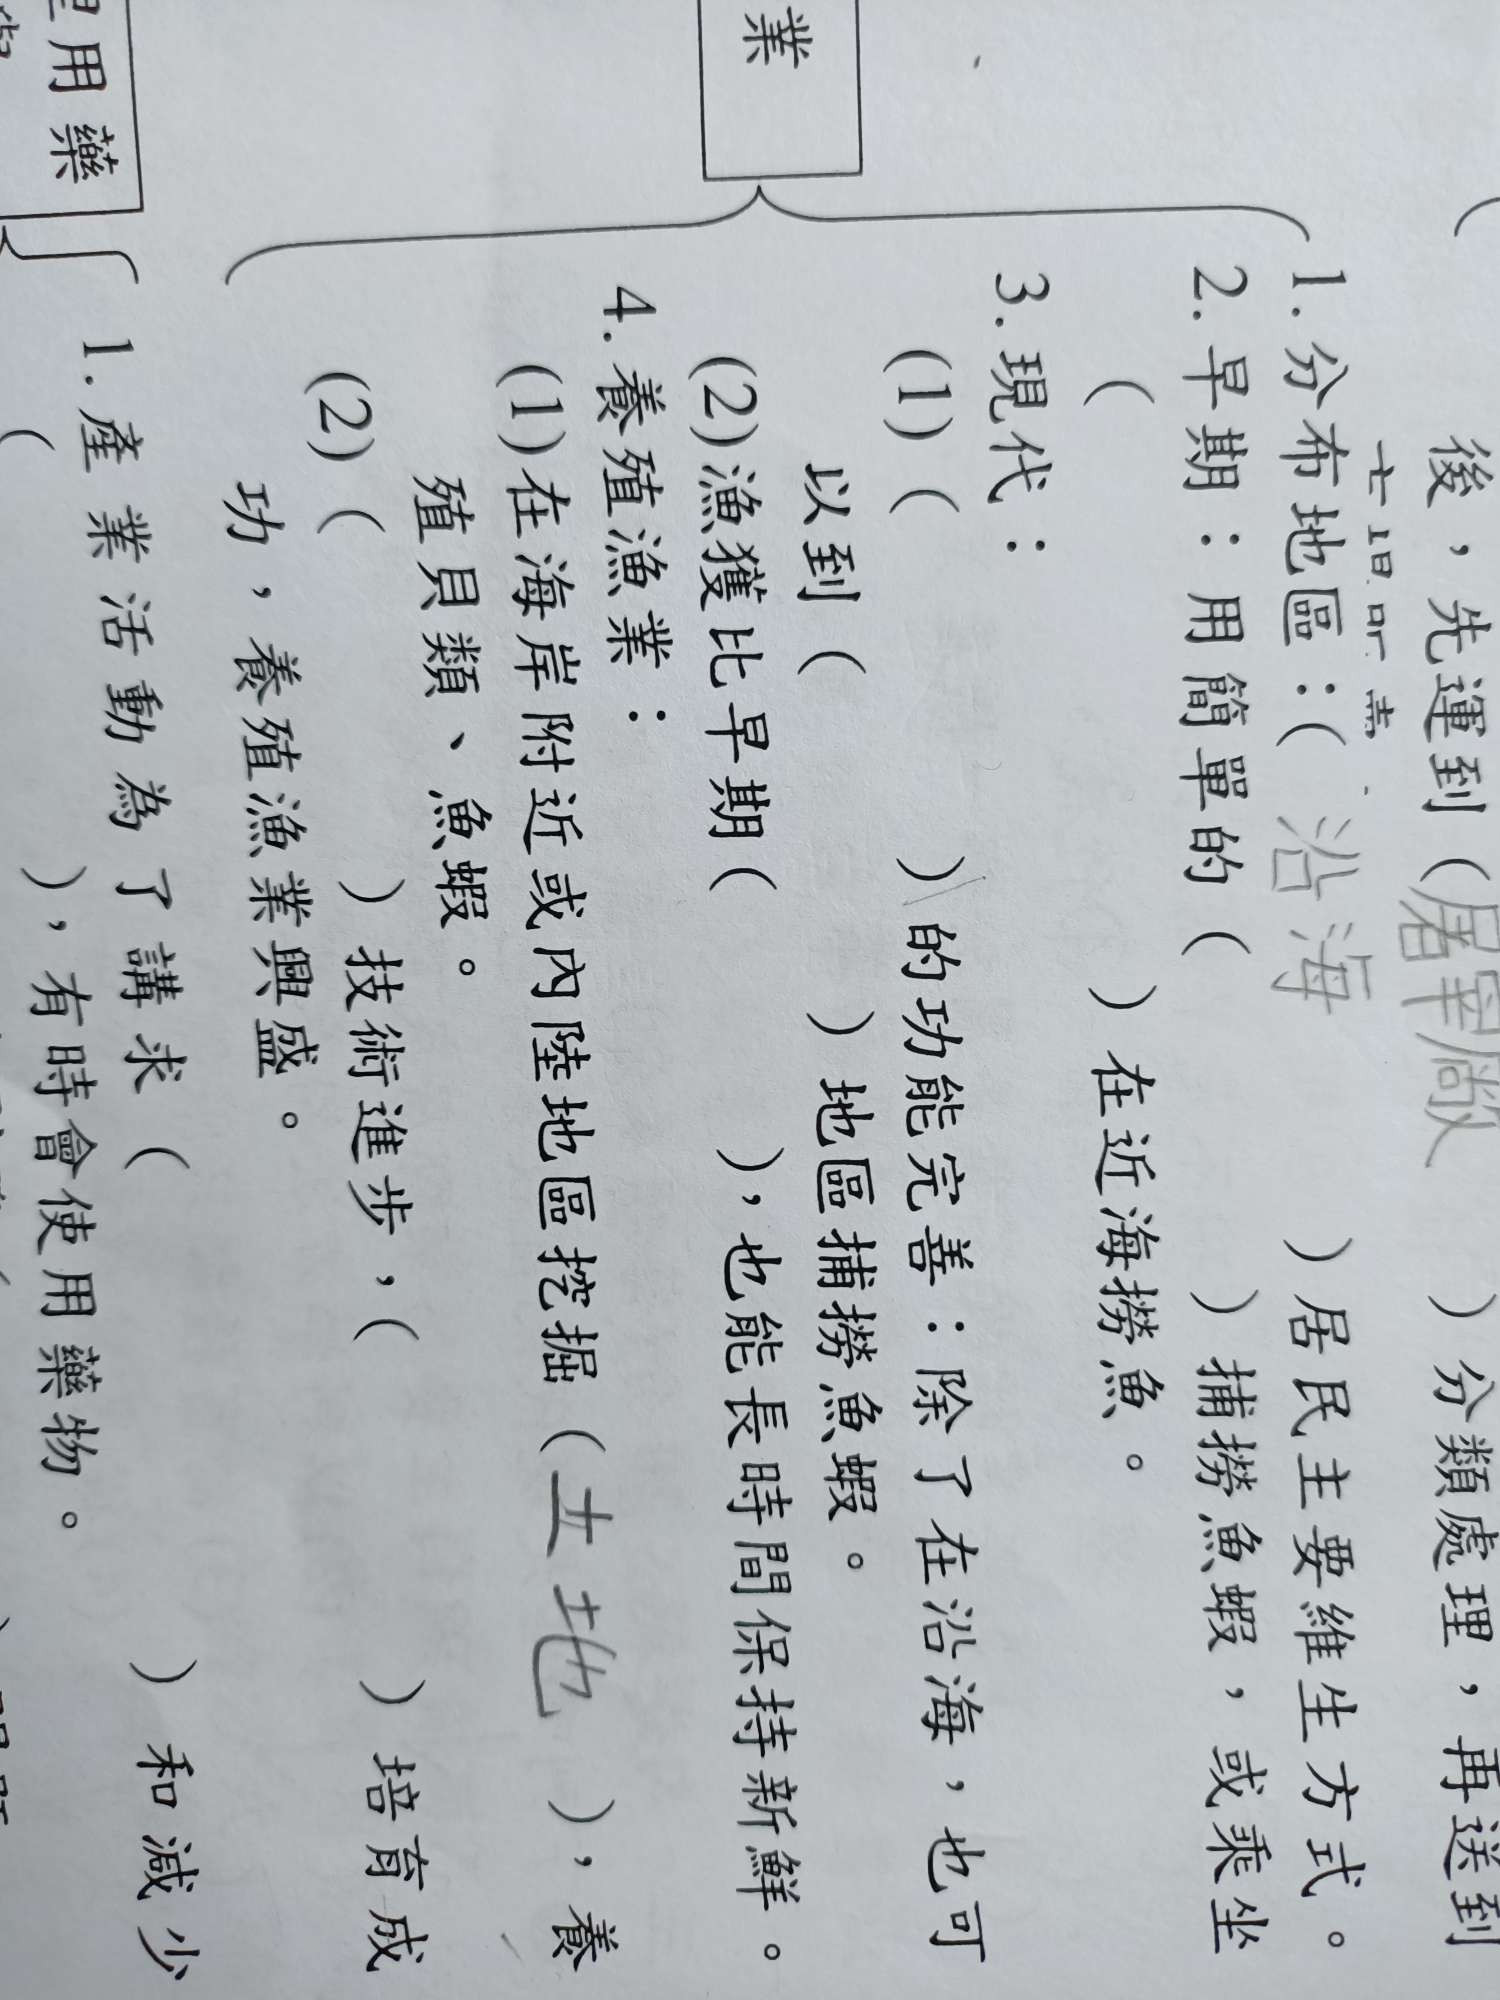 後，先運到（屠宰廠）分類處理，再送到
（
業
1.分布地區：（沿海）居民主要維生方式。
2.早期：用簡單的（　　）捕撈魚蝦，或乘坐
（　　）在近海撈魚。
3.現代：
(1)（　　）的功能完善：除了在沿海，也可
以到（　　）地區捕撈魚蝦。
(2)漁獲比早期（　　），也能長時間保持新鮮。
4.養殖漁業：
(1)在海岸附近或內陸地區挖掘（土地），養
殖貝類、魚蝦。
(2)（　　）技術進步，（　　）培育成
功，養殖漁業興盛。
用藥
1.產業活動為了講求（　　）和減少
（　　），有時會使用藥物。